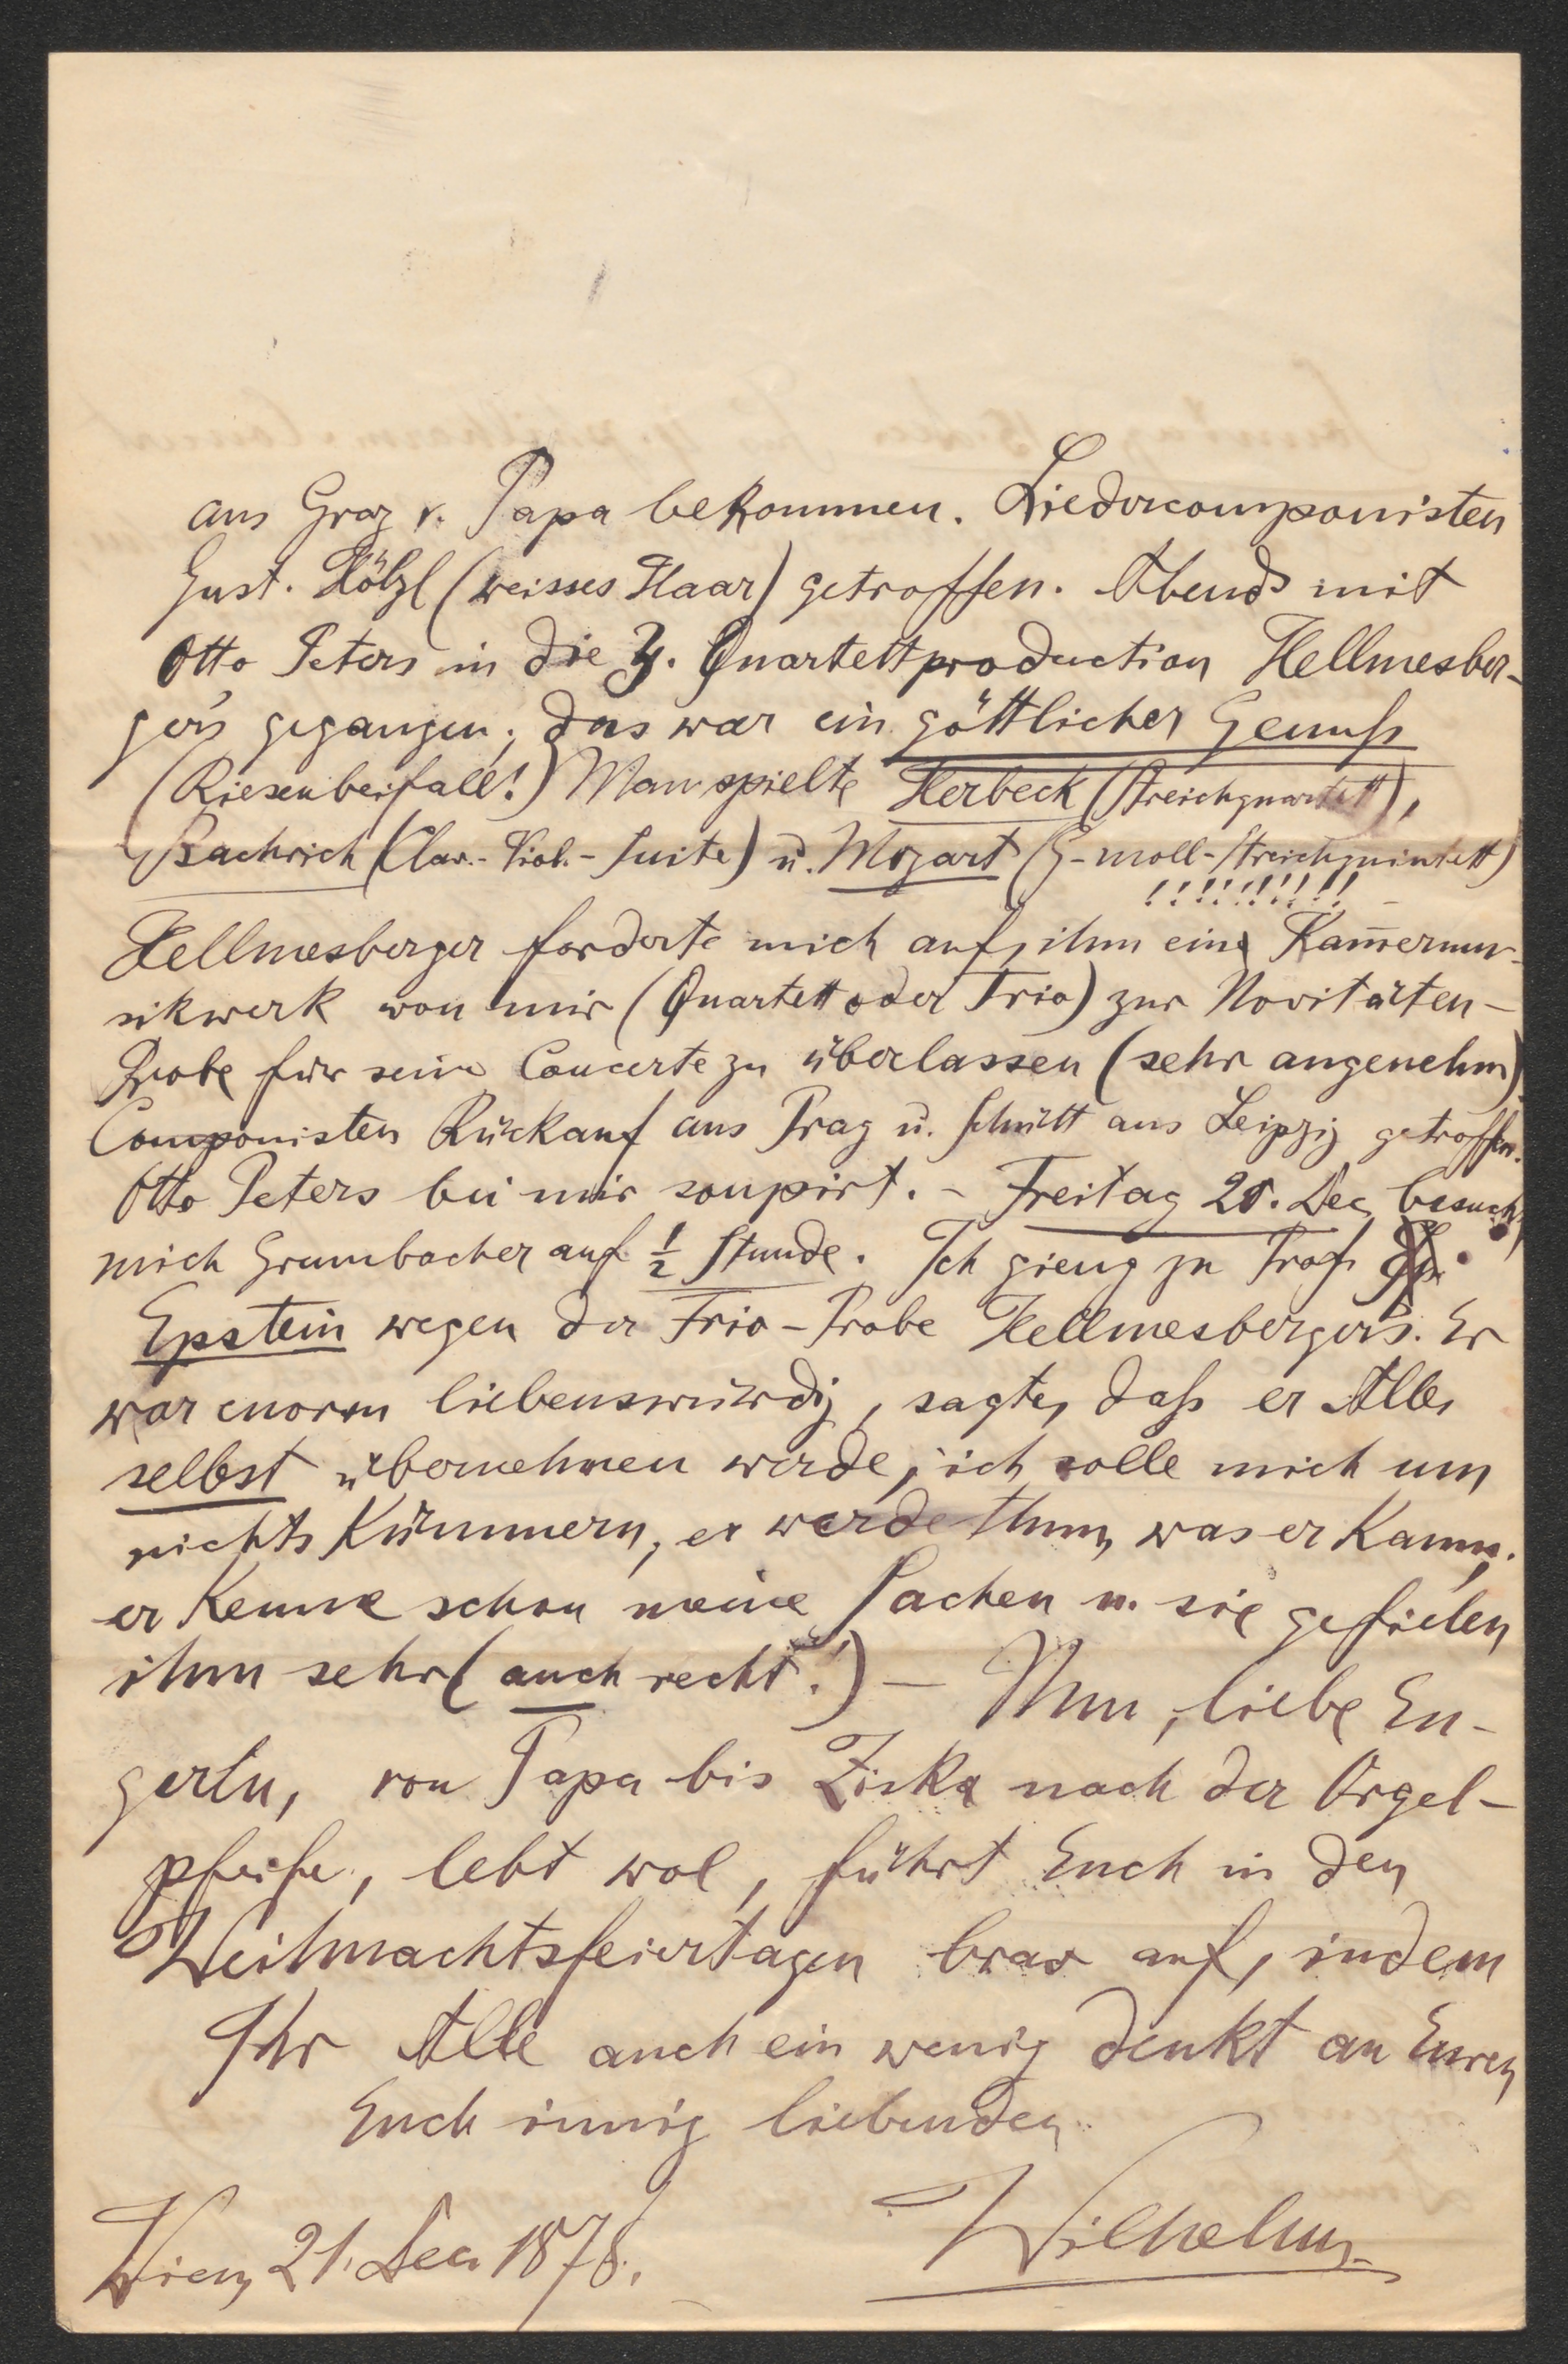 aus Graz v. Papa bekommen. Liedercomponisten
Gust. Hölzl (weisses Haar) getroffen. Abends mit
Otto Peters in die 3. Quartettproduction Hellmesber-
ger's gegangen; das war ein göttlicher Genuß
(Riesenbeifall!) Man spielte Herbeck (Streichquartett),
Bachrich (Clav.-Viol.-Suite) u. Mozart (G-moll-Streichquintett)
!!!!!!!!!! –
Hellmesberger forderte mich auf, ihm ein Kam̄ermu-
sikwerk von mir (Quartett oder Trio) zur Novitäten-
Probe für seine Concerte zu überlassen (sehr angenehm).
Componisten Rückauf aus Prag u. Schütt aus Leipzig getroffen.
Otto Peters bei mir soupirt. – Freitag 20. Dec. besucht
mich Grumbacher auf ½ Stunde. Ich gieng zu Prof.
Epstein wegen der Trio-Probe Hellmesberger's. Er
war enorm liebenswürdig, sagte, daß er Alles
selbst übernehmen werde, ich solle mich um
nichts kümmern, er werde thun, was er kann;
er kenne schon meine Sachen u. sie gefielen
ihm sehr (auch recht!) – Nun, liebe En-
gerln, von Papa bis Ziska nach der Orgel-
pfeife, lebt wol, führt Euch in den
Weihnachtsfeiertagen brav auf, indem
Ihr Alle auch ein wenig denkt an Euren
Euch innig liebenden
Wilhelm
Wien, 21. Dec. 1878.